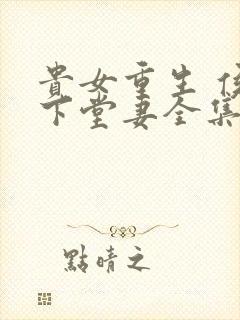 貴女重生
下堂妻全集
點晴之